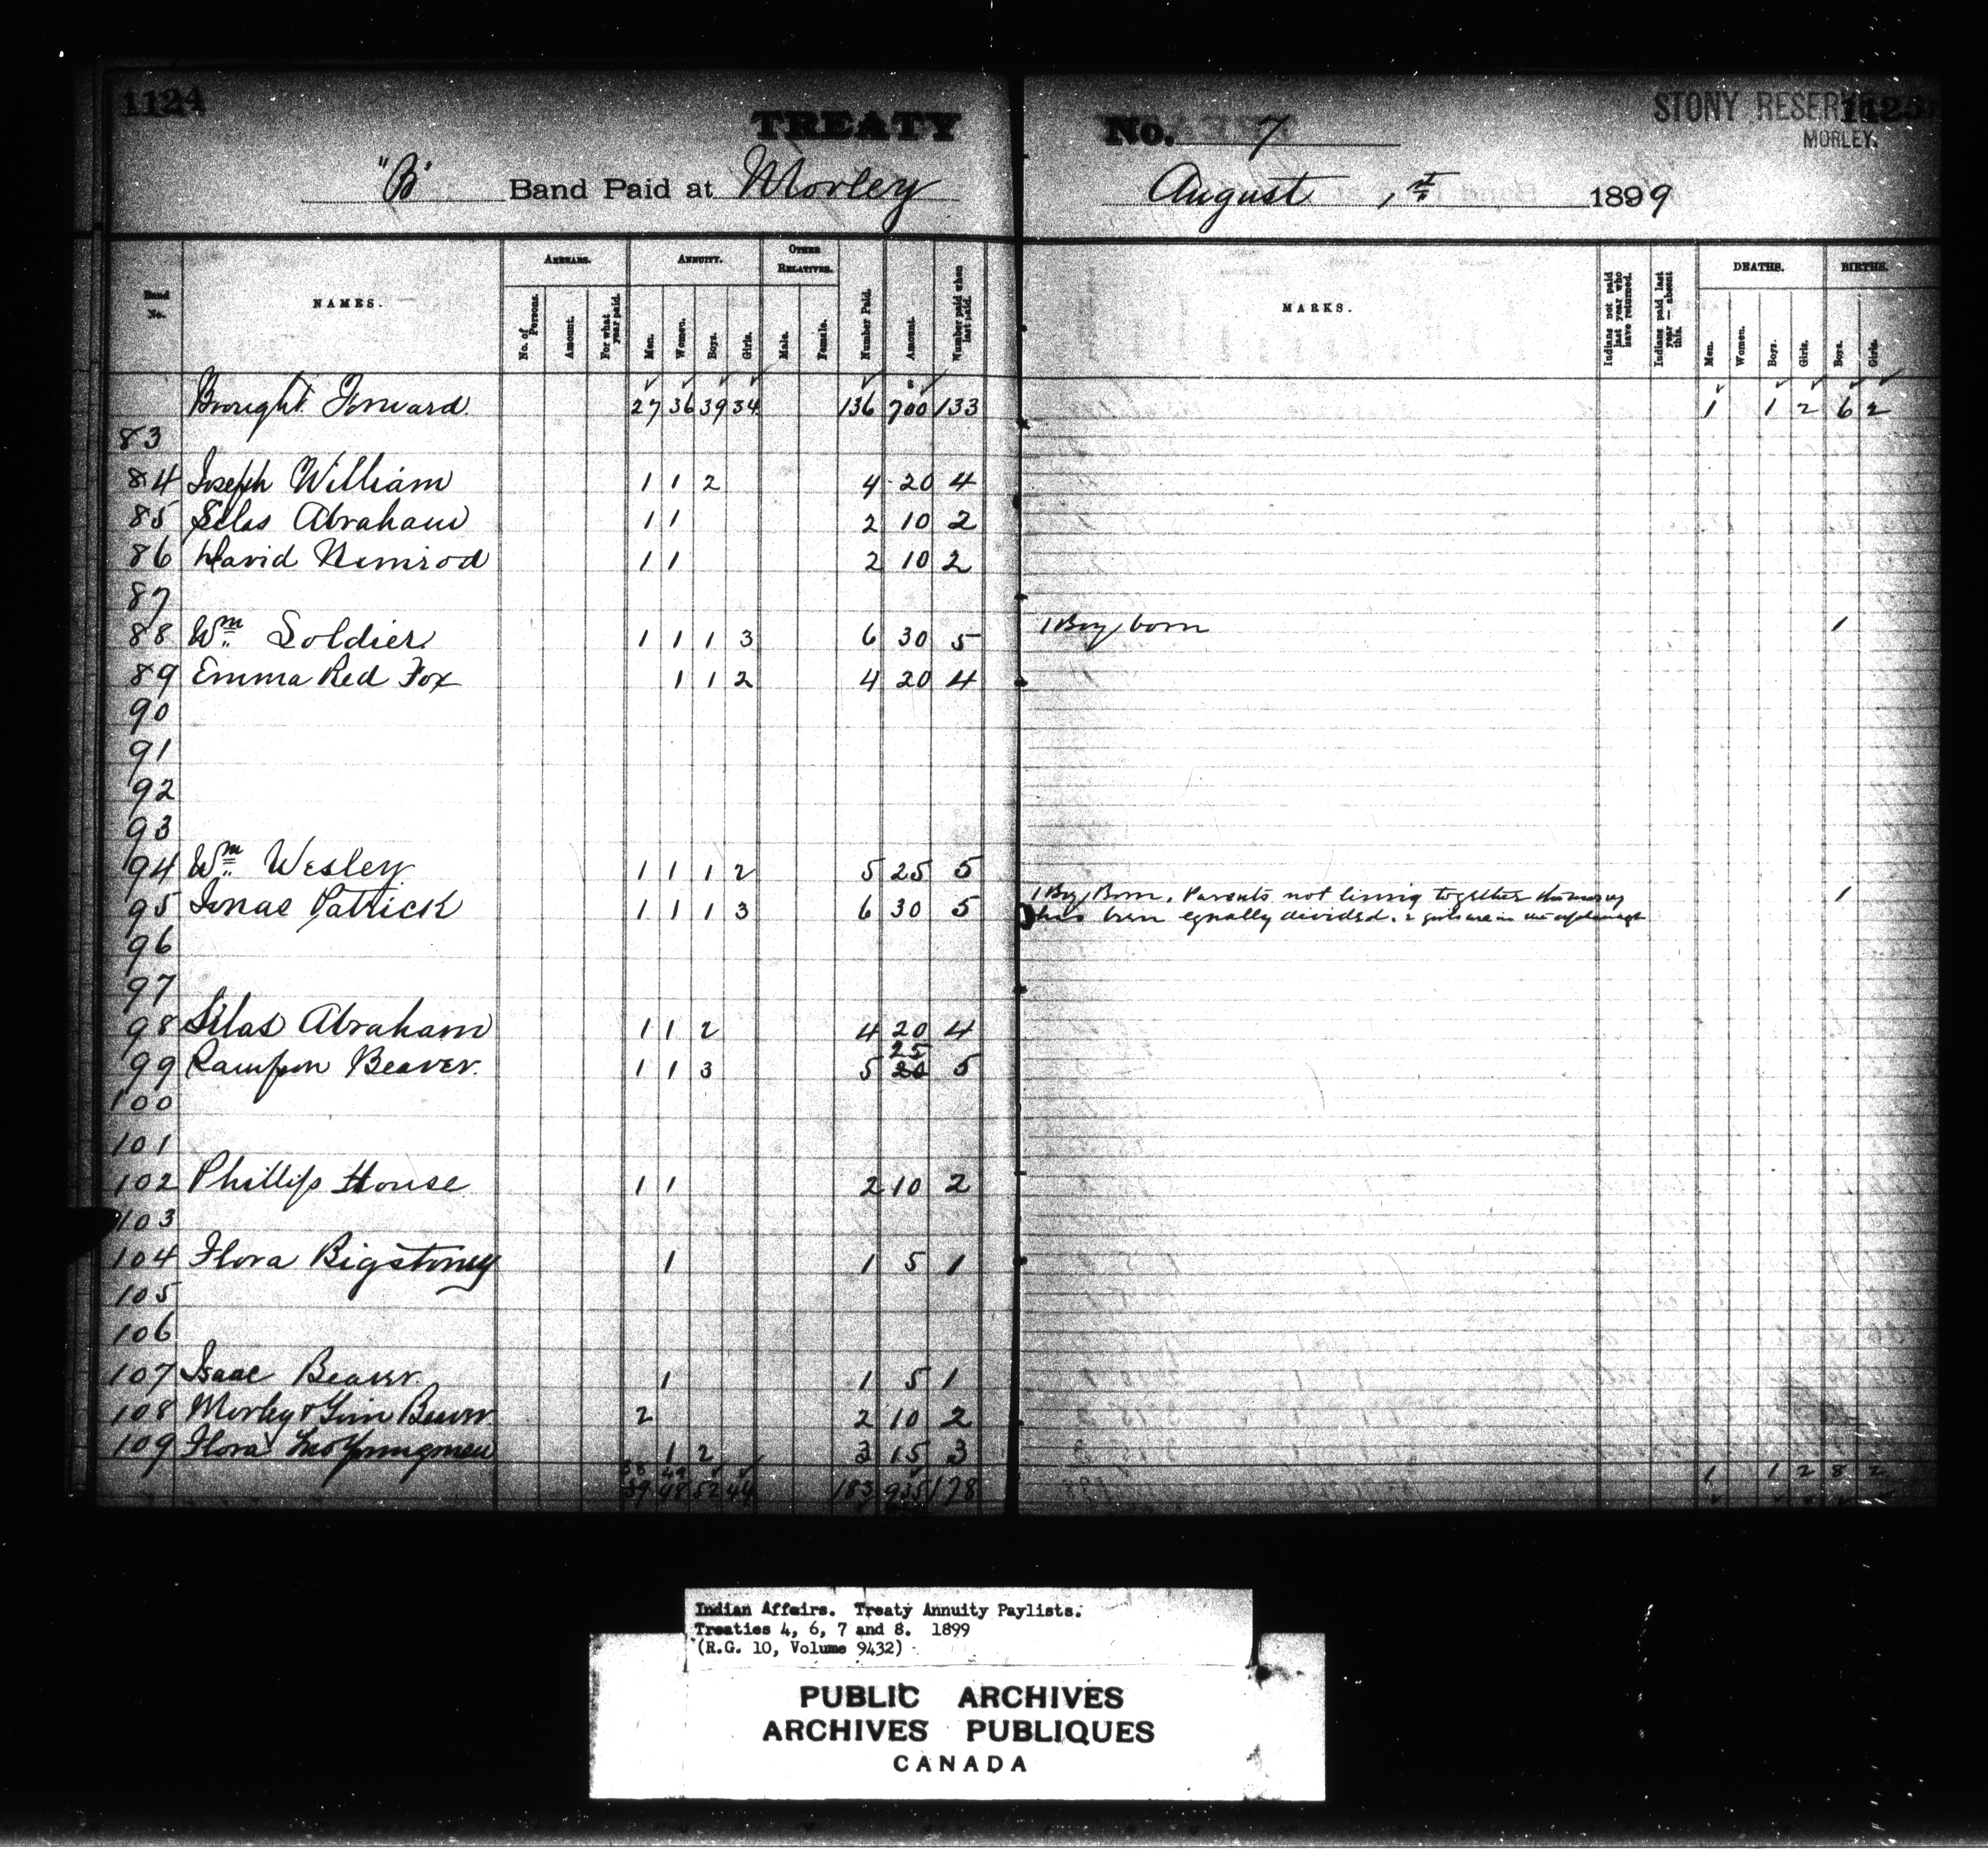 1124
TREATY No. 7
STONY RESERVE 1125
MORLEY.
"B" Band Paid at Morley August 1st 1899
Band No. NAMES. ARREARS. ANNUITY. OTHER RELATIVES. Number Paid. Amount. Number paid when last paid. MARKS. Indians not paid last year who have returned. Indians paid last year — absent this. DEATHS. BIRTHS.
No. of Persons. Amount. For what year paid. Men. Women. Boys. Girls. Male. Female. Men. Women. Boys. Girls. Boys. Girls.
Brought Forward 27 36 39 34 136 700 133 1 1 2 6 2
83
84 Joseph William 1 1 2 4 20 4
85 Silas Abraham 1 1 2 10 2
86 David Nimrod 1 1 2 10 2
87
88 Wm Soldier 1 1 1 3 6 30 5 1 Boy born 1
89 Emma Red Fox 1 1 2 4 20 4
90
91
92
93
94 Wm Wesley 1 1 1 2 5 25 5
95 Jonas Patrick 1 1 1 3 6 30 5 1 Boy Born. Parents not living together the money 1
has been equally divided. 2 girls are in the orphanage
96
97
98 Silas Abraham 1 1 2 4 20 4
25
99 Beaver 1 1 3 5 20 5
100
101
102 Phillip House 1 1 2 10 2
103
104 Flora Bigstoney 1 1 5 1
105
106
107 Isaac Beaver 1 1 5 1
108 Morley & Beaver 2 2 10 2
109 Flora Youngman 1 2 3 15 3
38 49
39 48 52 44 183 935 178 1 1 2 8 2
Indian Affairs. Treaty Annuity Paylists.
Treaties 4, 6, 7 and 8. 1899
(R.G. 10, Volume 9432)
PUBLIC ARCHIVES
ARCHIVES PUBLIQUES
CANADA